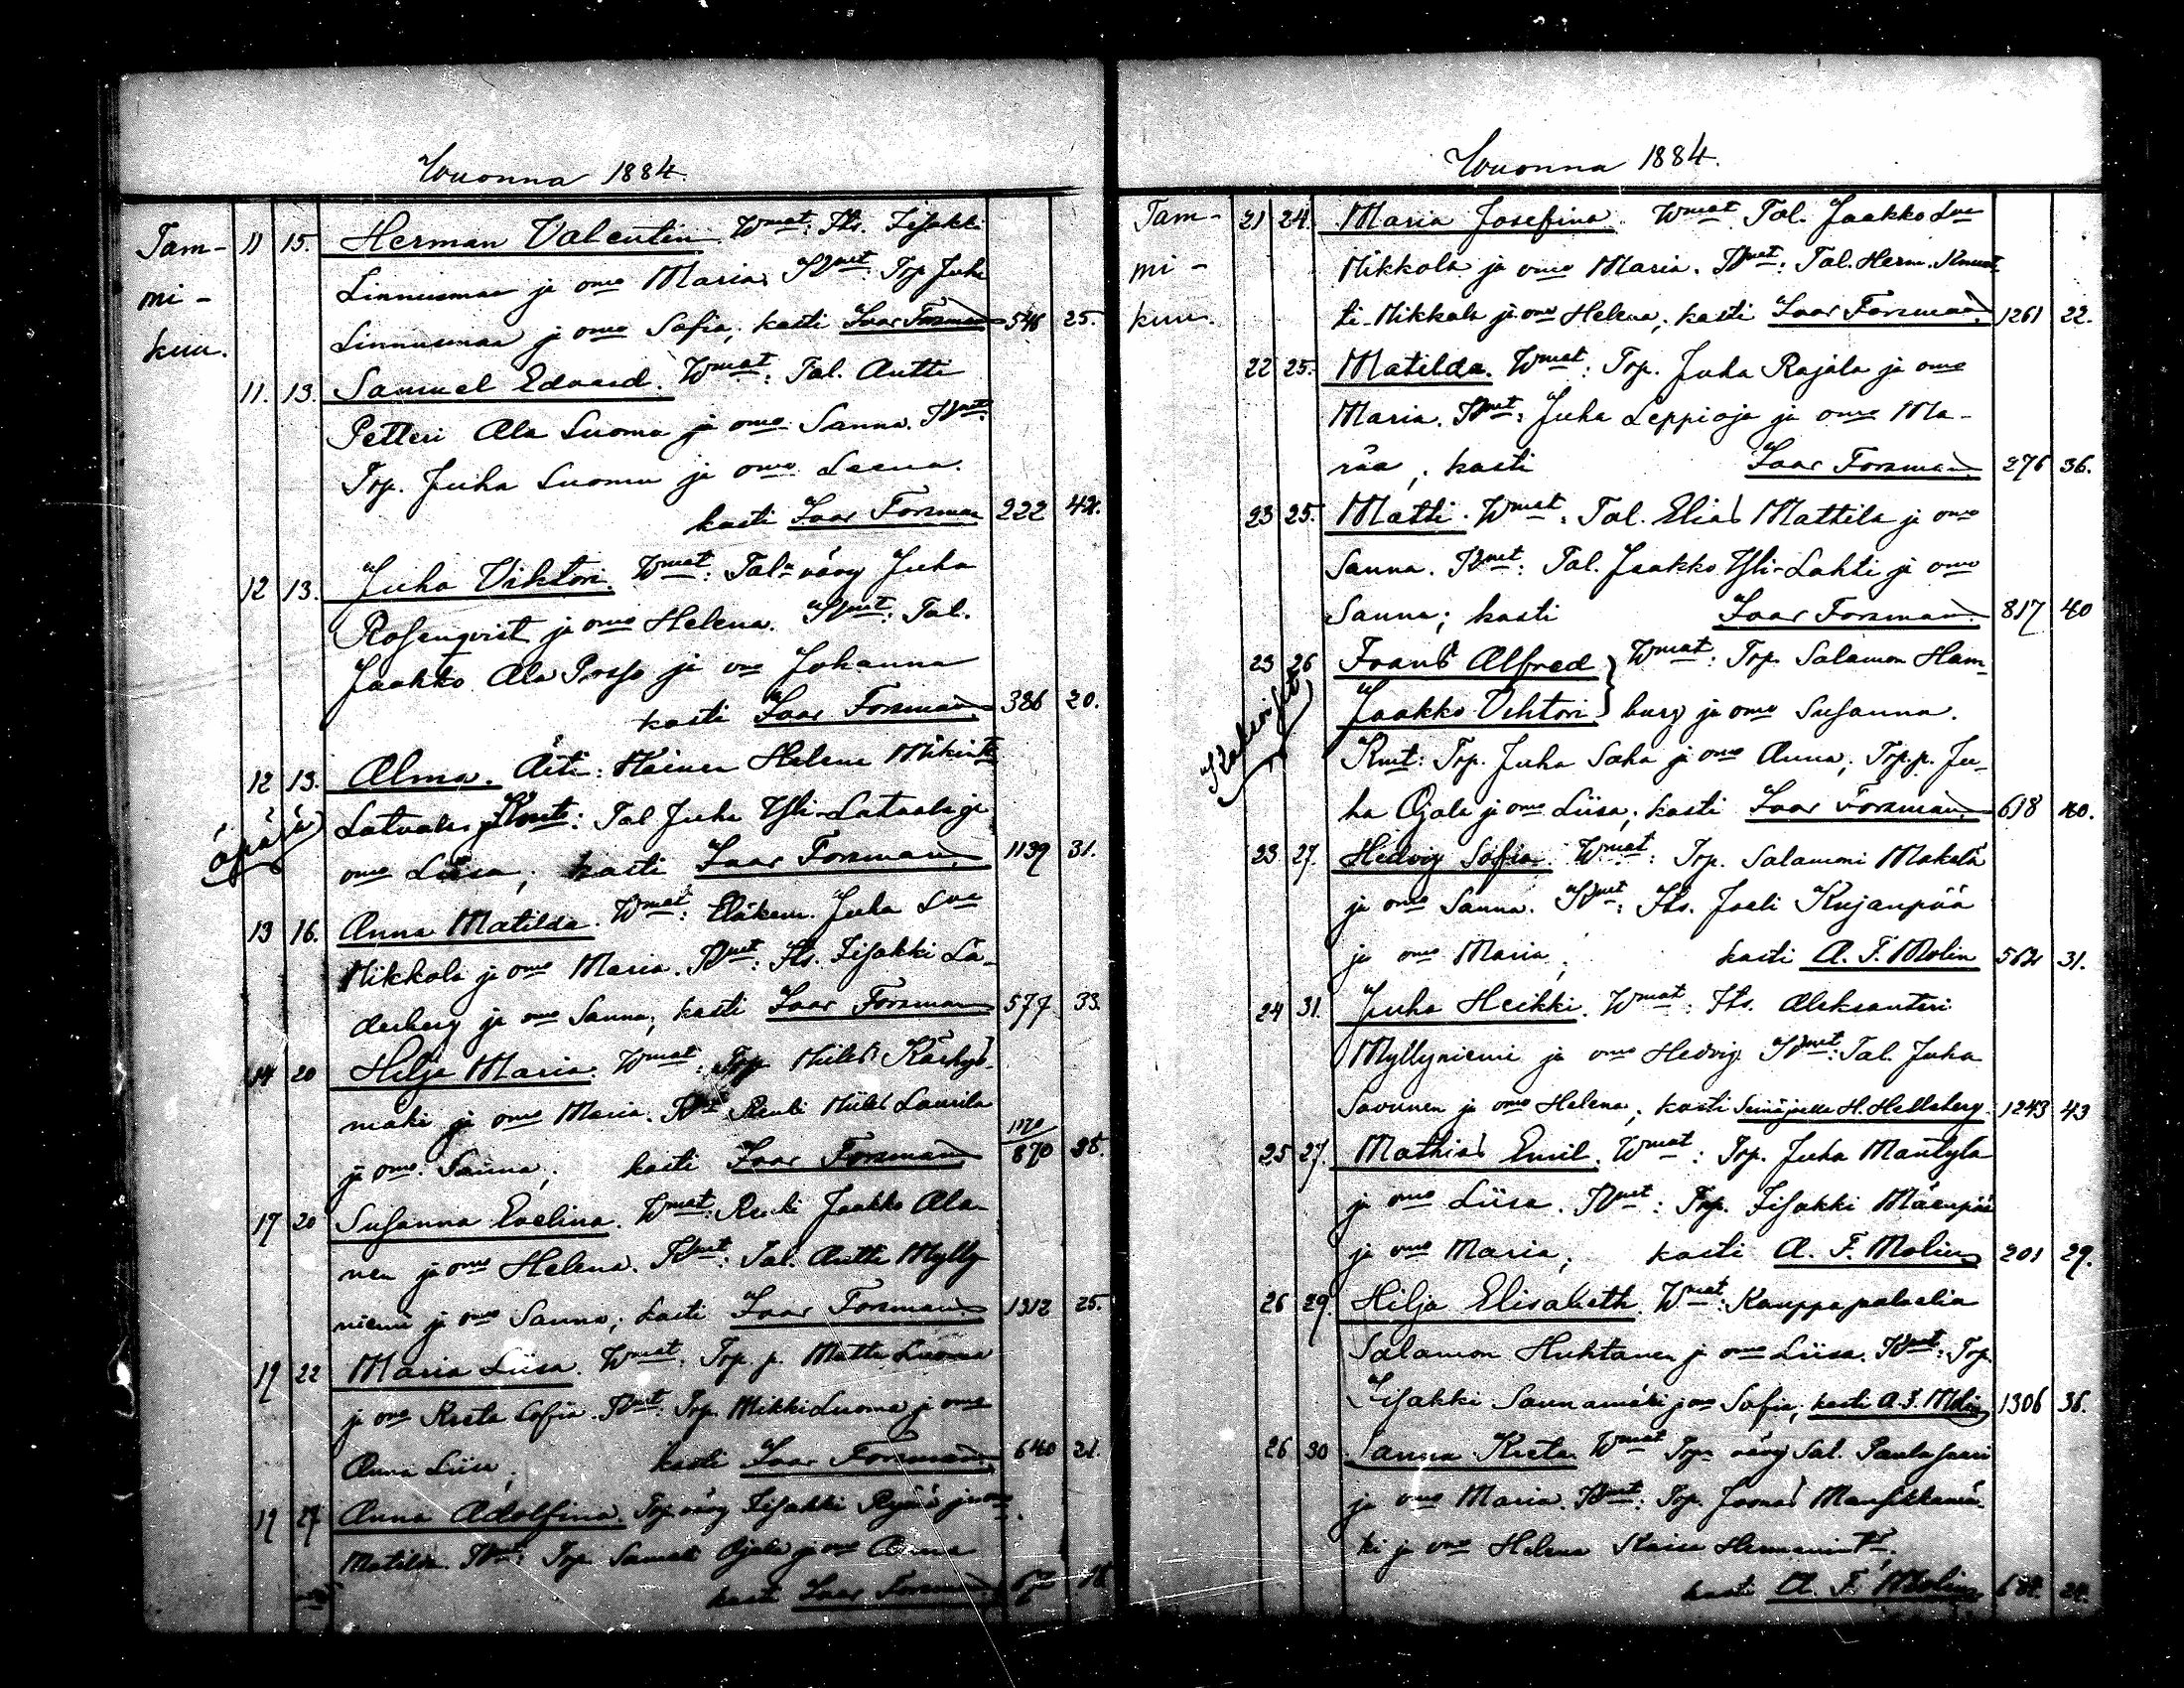 Wuonna 1884.
Tam- 11 15. Herman Valentin. Wmat: Its. Iisakki
mi- Linnusmaa ja omo Maria. Kmt: Trp Juha
kuu. Linnusmaa ja omo Sofia; kasti Ivar Forsman 546 25.
11. 13. Samuel Edvard. Wmat: Tal. Antti
Petteri Ala Luoma ja omo Sanna. Kmt:
Trp. Juha Luoma ja omo Leena.
kasti Ivar Forsman 222 42.
12 13. Juha Viktori. Wmat: Tal. vävy Juha
Rosenqvist ja omo Helena. Kmt: Tal.
Jaakko Ala Porsso ja omo Johanna
kasti Ivar Forsman. 386 20.
12 13. Alma. Äiti: Nainen Helena
äpärä Latvala ja Kmt: Tal Juha Yli-Latvala ja
omo Liisa; kasti Ivar Forsman. 1139 31.
13 16. Anna Matilda. Wmat: Eläkem. Juha
Mikkola ja omo Maria. Kmt: Its. Iisakki La-
derberg ja omo Sanna; kasti Ivar Forsman 577 33.
14 20 Hilja Maria. Wmat: Trp
mäki ja omo Maria. Renki Laurila
ja omo Sanna; kasti Ivar Forsman. 870 35.
17 20 Susanna Evelina. Wmat: Renki Jaakko Ala-
nen ja omo Helena. Kmt: Tal. Antti Mylly
niemi ja omo Sanna; kasti Ivar Forsman. 1312 25.
19 22 Maria Liisa. Wmat: Trp. p. Matti Luoma
ja omo Kreta Sofia. Kmt: Trp. Mikki Luoma ja omo
Anna Liisa; kasti Ivar Forsman. 640 21.
19 27 Anna Adolfina. Trp vävy Iisakki ja omo
Matilda. Kmt: Trp Samuli Ojala ja omo Anna
kasti Ivar Forsman.
Wuonna 1884.
Tam- 21 24. Maria Josefina. Wmat Tal. Jaakko
mi- Mikkola ja omo Maria. Kmt: Tal. Herm. Kmat
kuu. ti-Mikkola ja omo Helena; kasti Ivar Forsman. 1261 22.
22 25. Matilda. Wmat: Trp. Juha Rajala ja omo
Maria. Kmt: Juha Leppioja ja omo Ma-
ria; kasti Ivar Forsman. 276 36.
23 25. Matti. Wmat: Tal. Elias Mattila ja omo
Sanna. Kmt: Tal. Jaakko Yli-Lahti ja omo
Sanna; kasti Ivar Forsman. 817 40
23 26 Frans Alfred } Wmat: Trp. Salamon Ham-
Jaakko Vihtori } burg ja omo Susanna.
Kmt: Trp. Juha Saha ja omo Anna; Trp. p. Ju-
ha Ojala ja omo Liisa; kasti Ivar Forsman. 618 40.
23 27. Hedvig Sofia. Wmat: Trp. Salamoni Mäkelä
ja omo Sanna. Kmt: Its. Joeli Kujanpää
ja omo Maria; kasti A. F. Molin 562 31.
24 31. Juha Heikki. Wmat: Its. Aleksanteri
Myllyniemi ja omo Hedvig. Kmt: Tal. Juha
Savunen ja omo Helena; kasti Seinäjoella H. Hellsberg 1243 43
25 27. Mathias Emil. Wmat: Trp. Juha Mäntylä
ja omo Liisa. Kmt: Trp. Iisakki Mäenpää
ja omo Maria; kasti A. F. Molin 201 29.
26 29. Hilja Elisabeth. Wmat: Kauppapalvelia
Salamon Huhtanen ja omo Liisa. Kmt: Trp.
Iisakki Saunamäki ja omo Sofia; kasti A. F. Molin 1306 36.
26 30 Sanna Kreta Wmat Trp. vävy Sal. Paulasaari
ja omo Maria. Kmt: Trp. Joonas Mansikkamä-
ki ja omo Helena Kaisa
kasti A. F. Molin